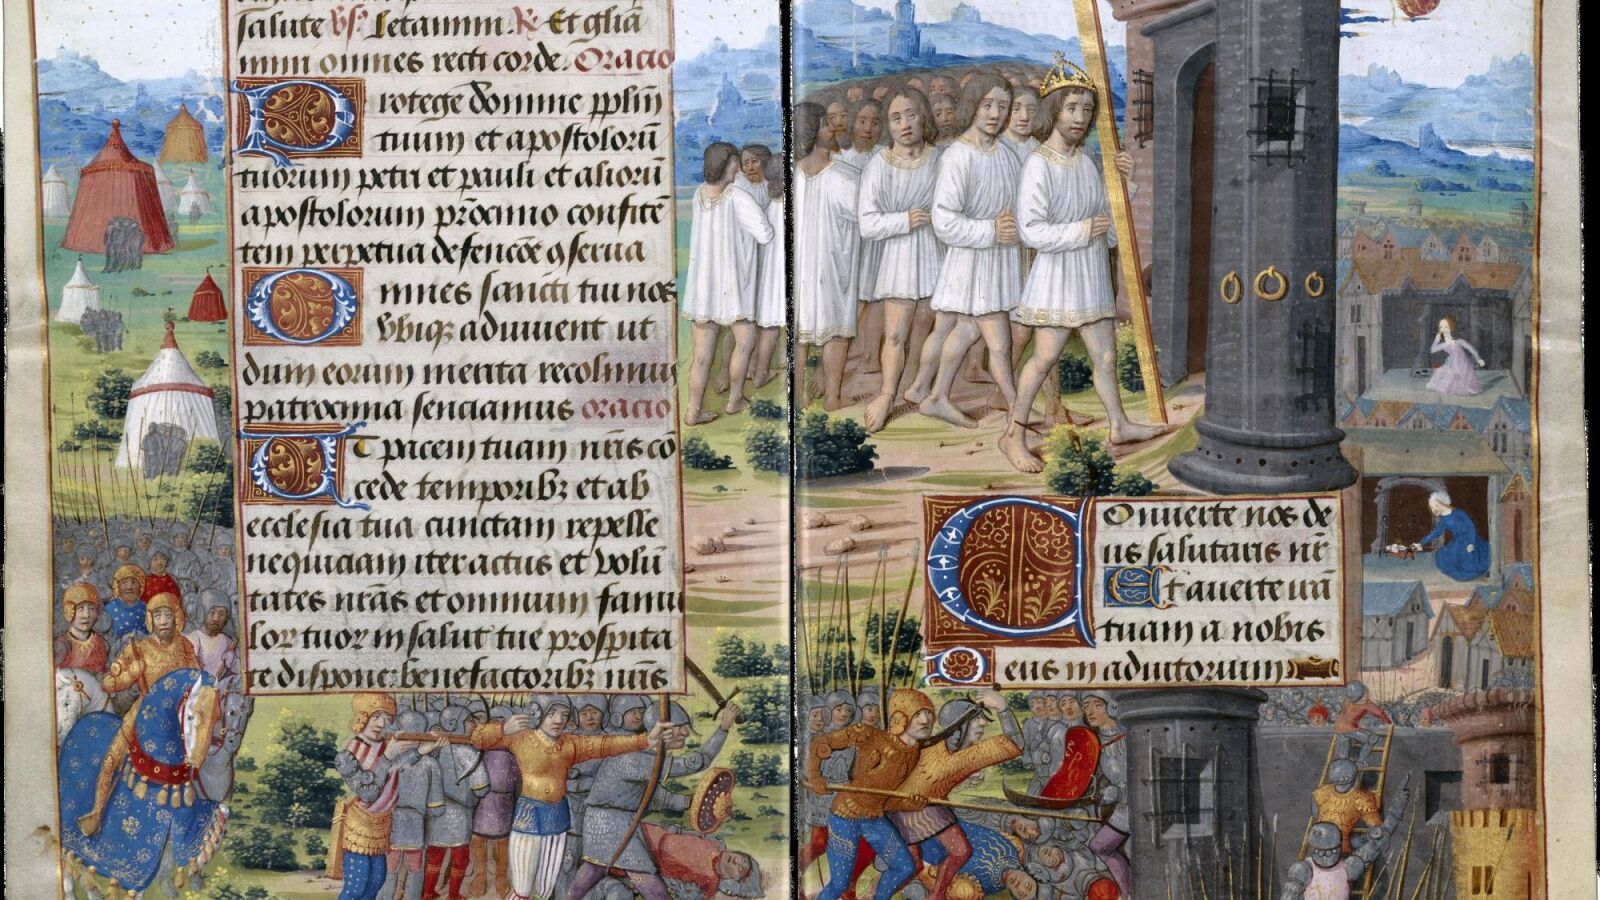 salute v̄s. Letamini. ℟ Et gl̄ia
mini omnes recti corde. Oracio
Protege domine pp̄lm̄
tuum et apostolorū
tuorum petri et pauli et aliorū
apostolorum pr̄ocinio confitē
tem perpetua defencōe ꝯserua
Omnes sancti tui nos
vbiqꝫ adiuuent ut
dum eorum merita recolimus
patrocinia senciamus oracio
Et pacem tuam nr̄is cō
cede temporibꝫ et ab
ecclesia tua cunctam repelle
nequiciam iter actus et volūn
tates nr̄as et omnium famu
lor tuor in salut tue prosperita
te dispone: benefactoribꝫ nr̄is
Conuerte nos de
us salutaris nr̄
Et auerte irā
tuam a nobis
Deus in adiutorium